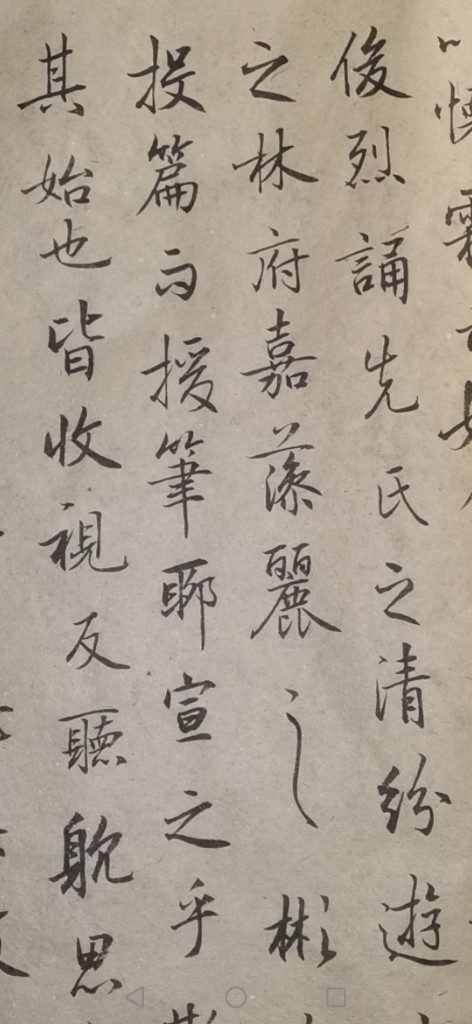 俊烈誦先氏之清紛遊
之林府嘉藻麗之彬
投篇而援筆聊宣之乎
其始也皆收視反聽躭思